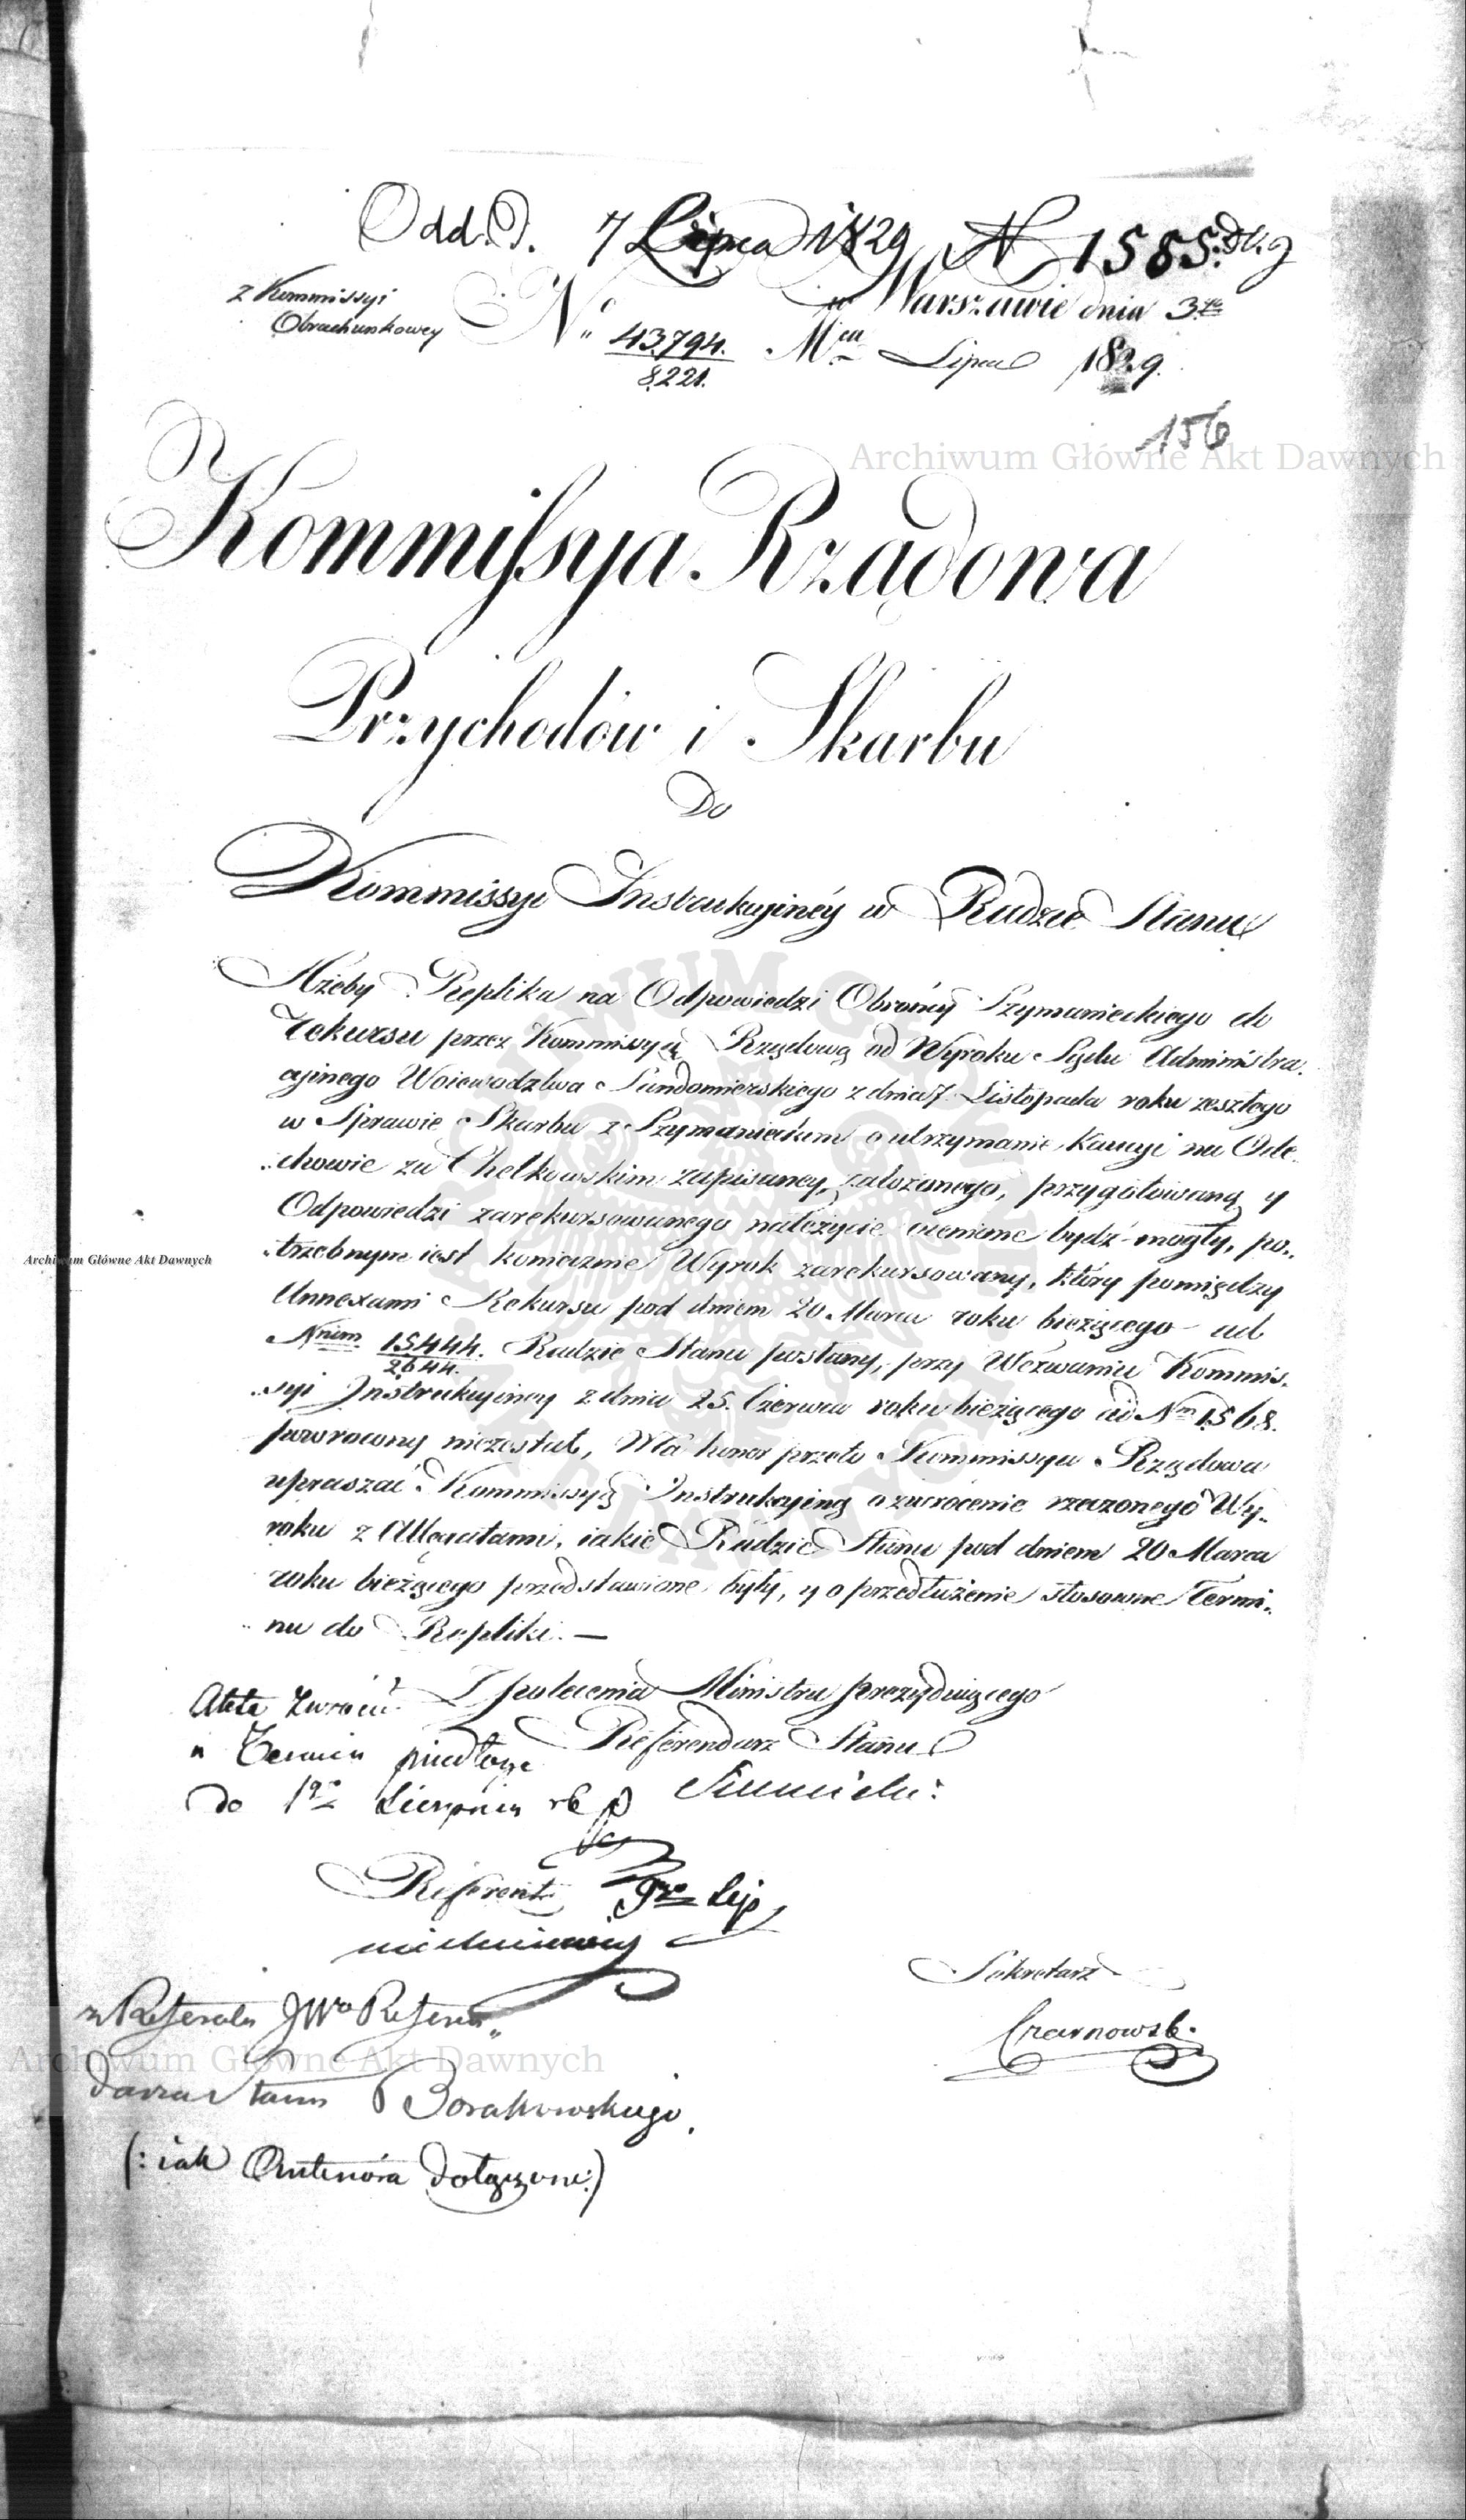 Odd. D. 7 Lipca 1829 N 1585.
z Kommissyi
Obrachunkowey
No 43794. / 8221.
w Warszawie dnia 3go
Mca Lipca 1829.
156
Archiwum Główne Akt Dawnych
Kommissyia Rządowa
Przychodów i Skarbu
Do
Kommissyi Instrukcyinéy w Radzie Stanu
Ażeby Replika na Odpowiedzi Obrońcy Szymanieckiego do
Rekursu przez Kommissyią Rządową od Wyroku Sądu Administra-
cyjnego Woiewodztwa Sandomierskiego z dnia 7. Listopada roku zeszłego
w Sprawie Skarbu z Szymanieckim o utrzymanie Kaucyi na Ode-
chowie za Chełkowskim zapisaney, założonego, przygotowaną y
Odpowiedzi zarekursowanego należycie ocenione bydź mogły, po-
trzebnym iest koniecznie Wyrok zarekursowany, który pomiędzy
Annexami Rekursu pod dniem 20 Marca roku bieżącego ad
Nrum 15444. / 2644. Radzie Stanu posłany, przy Wezwaniu Kommis-
syi Instrukcyiney z dnia 25. Czerwca roku bieżącego ad Nm 1568.
powrocony niezostał, Ma honor przeto Kommissyia Rządowa
upraszać Kommissyią Instrukcyiną o zwrócenie rzeczonego Wy-
roku z Allegatami, iakie Radzie Stanu pod dniem 20 Marca
roku bieżącego przedstawione były, y o przedłużenie stosowne Termi-
nu do Repliki. —
Z polecenia Ministra prezyduiącego
Referendarz Stanu
Akta zwrócić
a Termin przedłuża
do 1go Sierpnia rb
Referent 9go Lip
Sekretarz
Czarnowski
z Referatu JWo Referen-
darza Stanu Borakowskiego
(: iak Antenora dołączone :)
Archiwum Główne Akt Dawnych
Archiwum Główne Akt Dawnych